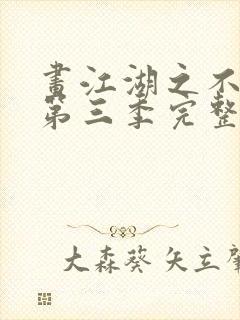 畫江湖之不
第三季完整
大森葵 矢立肇